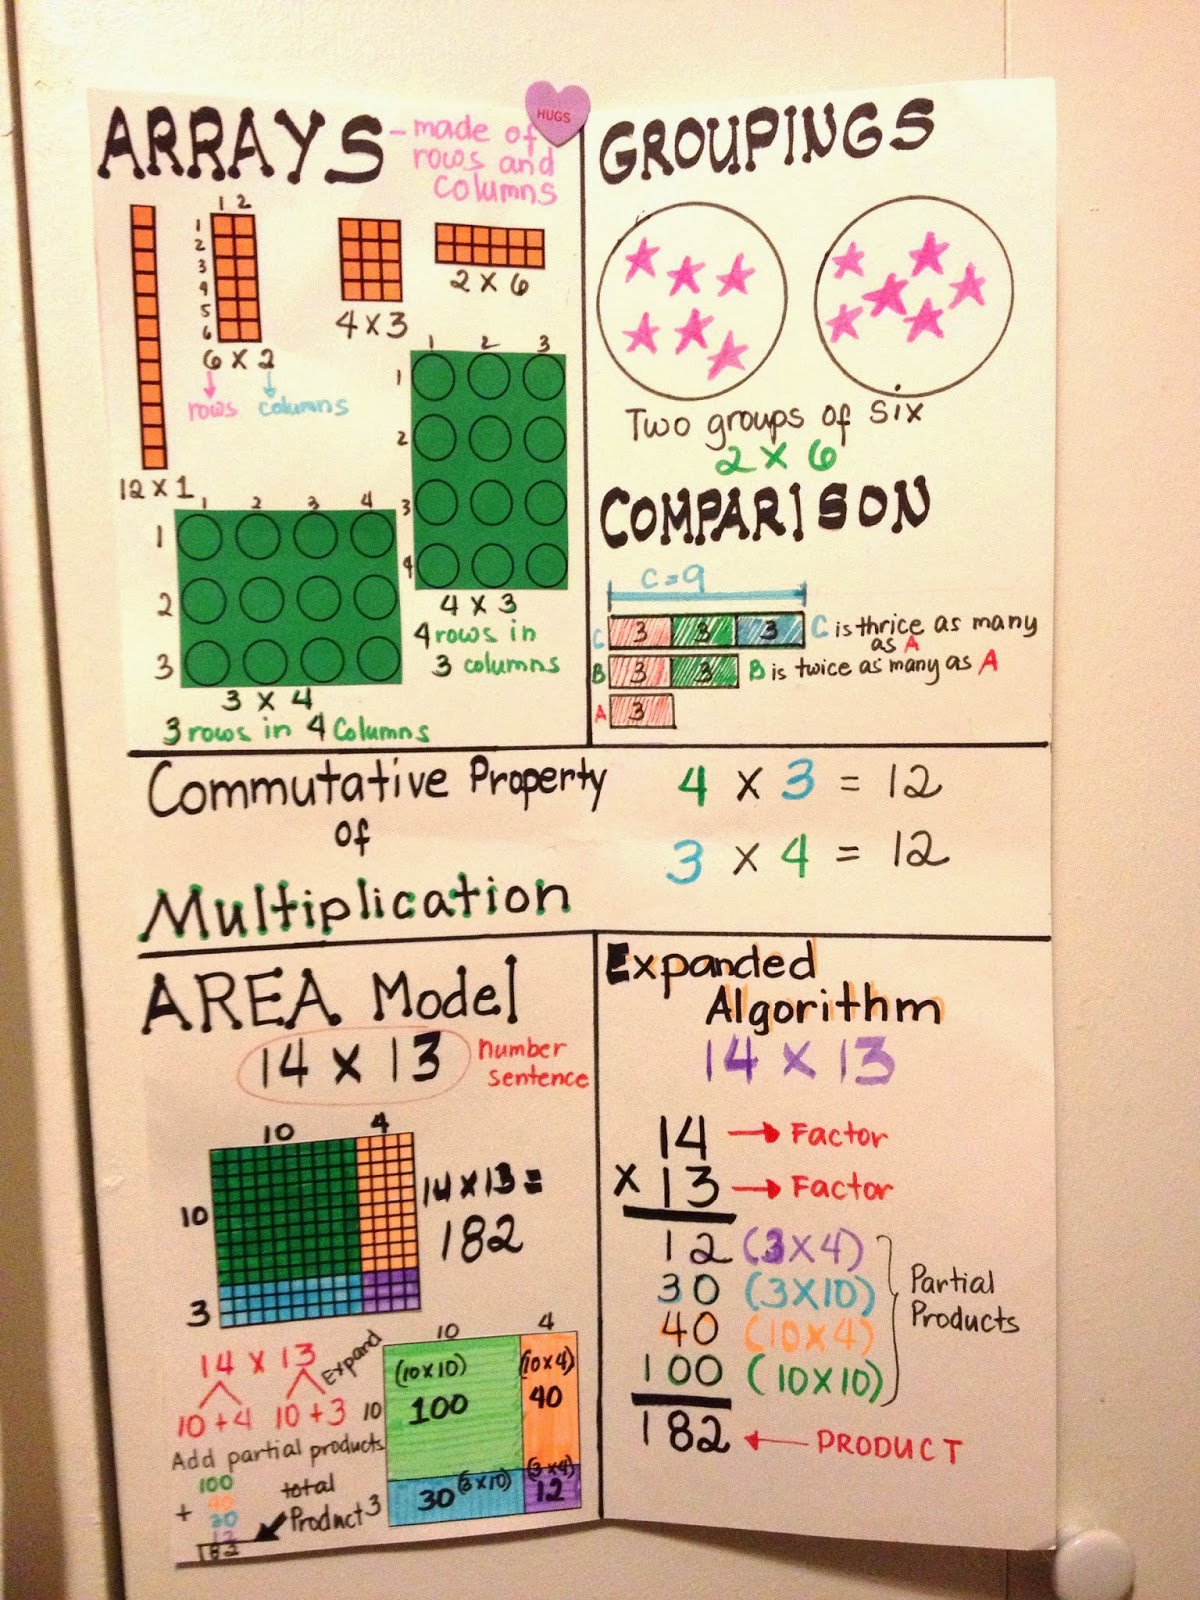 HUGS
ARRAYS
- made of
rows and
columns
1 2
1
2
3
4
5
6
6 X 2
rows columns
4 X 3
2 X 6
12 X 1
1 2 3
1
2
3
4
4 X 3
4 rows in
3 columns
1 2 3 4
1
2
3
3 X 4
3 rows in 4 Columns
GROUPINGS
Two groups of six
2 X 6
COMPARISON
C = 9
C 3 3 3 C is thrice as many
as A
B 3 3 B is twice as many as A
A 3
Commutative Property
of
Multiplication
4 X 3 = 12
3 X 4 = 12
AREA Model
14 X 13 number
sentence
10 4
10
3
14 X 13 =
182
14 X 13 Expand
10 + 4 10 + 3
Add partial products
100
+ 40
30
12
182
total
Product
10 4
10
(10x10) (10x4)
100 40
3
30 (3x10) (3x4)
12
Expanded
Algorithm
14 X 13
14 → Factor
X 13 → Factor
12 (3X4)
30 (3X10)
40 (10X4)
100 (10X10)
Partial
Products
182 ← PRODUCT